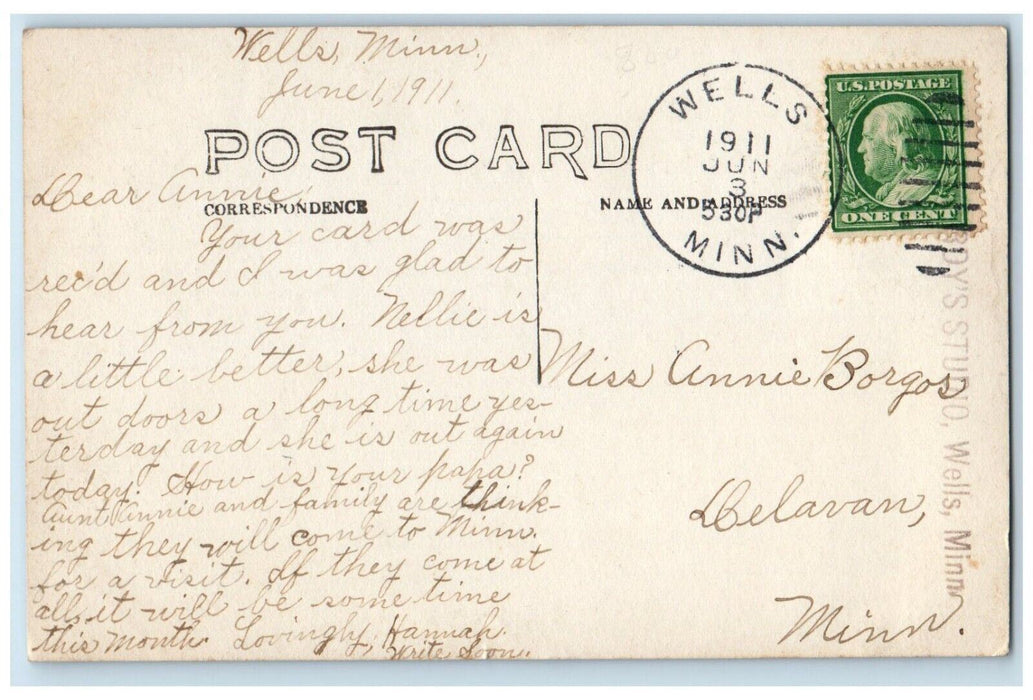 Wells, Minn.,
June 1, 1911.
POST CARD
CORRESPONDENCE
NAME AND ADDRESS
WELLS
1911
JUN
3
530P
MINN.
U.S. POSTAGE
ONE CENT
Dear Annie,
Your card was
rec'd and I was glad to
hear from you. Nellie is
a little better, she was
out doors a long time yes-
terday and she is out again
today. How is your papa?
Aunt Annie and family are think-
ing they will come to Minn.
for a visit. If they come at
all it will be some time
this month. Lovingly, Hannah.
Write Soon.
Miss Annie Borgos
Delavan,
Minn.
STUDIO, Wells, Minn.